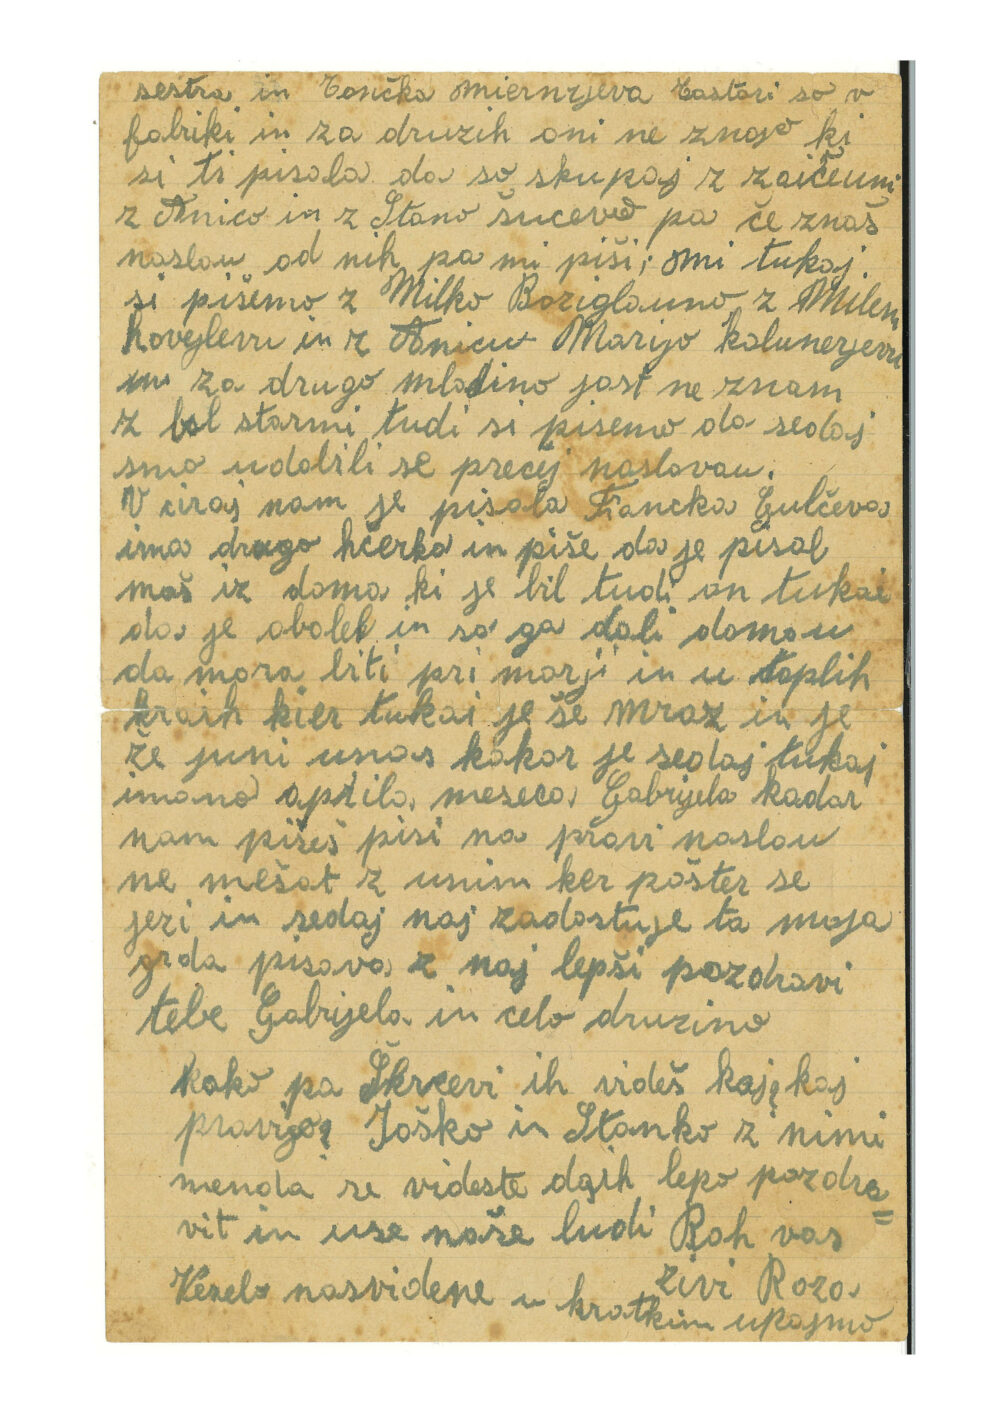 sestra in Tončka Miernzjeva tastari so v
fabriki in za druzih oni ne znajo ki
si ti pisala da so skupaj z zaičeuni
z Anico in z Stano šuceveo pa če znaš
naslau od nih pa mi piši; mi tukaj
si pišemo z Milko Bariglauno z Milen
Kovejlevu in z Anicu Marijo kalunerjevu
za drugo mladino jast ne znam
z bol starmi tudi si pisemo da sedaj
smo udobili se precej naslovau.
V ciraj nam je pisala Francka Gulčeva
ima drugo hčerko in piše da je pisal
maš iz doma ki je bil tudi on tukai
da je obolel in so ga dali domou
da mora biti pri morji in u toplih
kraih kier tukai je še mraz in je
že juni unas kakor je sedaj tukaj
imamo aprila meseca Gabrijela kadar
nam pišeš pisi na pravi naslau
ne mešat z unim ker pošter se
jezi in sedaj naj zadostuje ta moja
grda pisava z naj lepši pozdravi
tebe Gabrijela in celo druzino
kako pa Škrcevi ih videš kaj kaj
pravijo Joško in Stanko z nimi
menda se videste dajih lepo pozdra=
vit in use naše ludi Boh vas
zivi Roza
Veselo nasvidene u kratkim upajmo